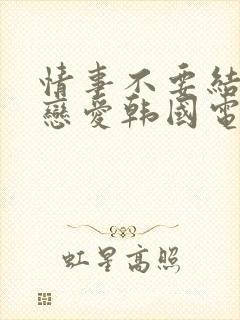 情事不要結
戀愛韩國電
虹星高照